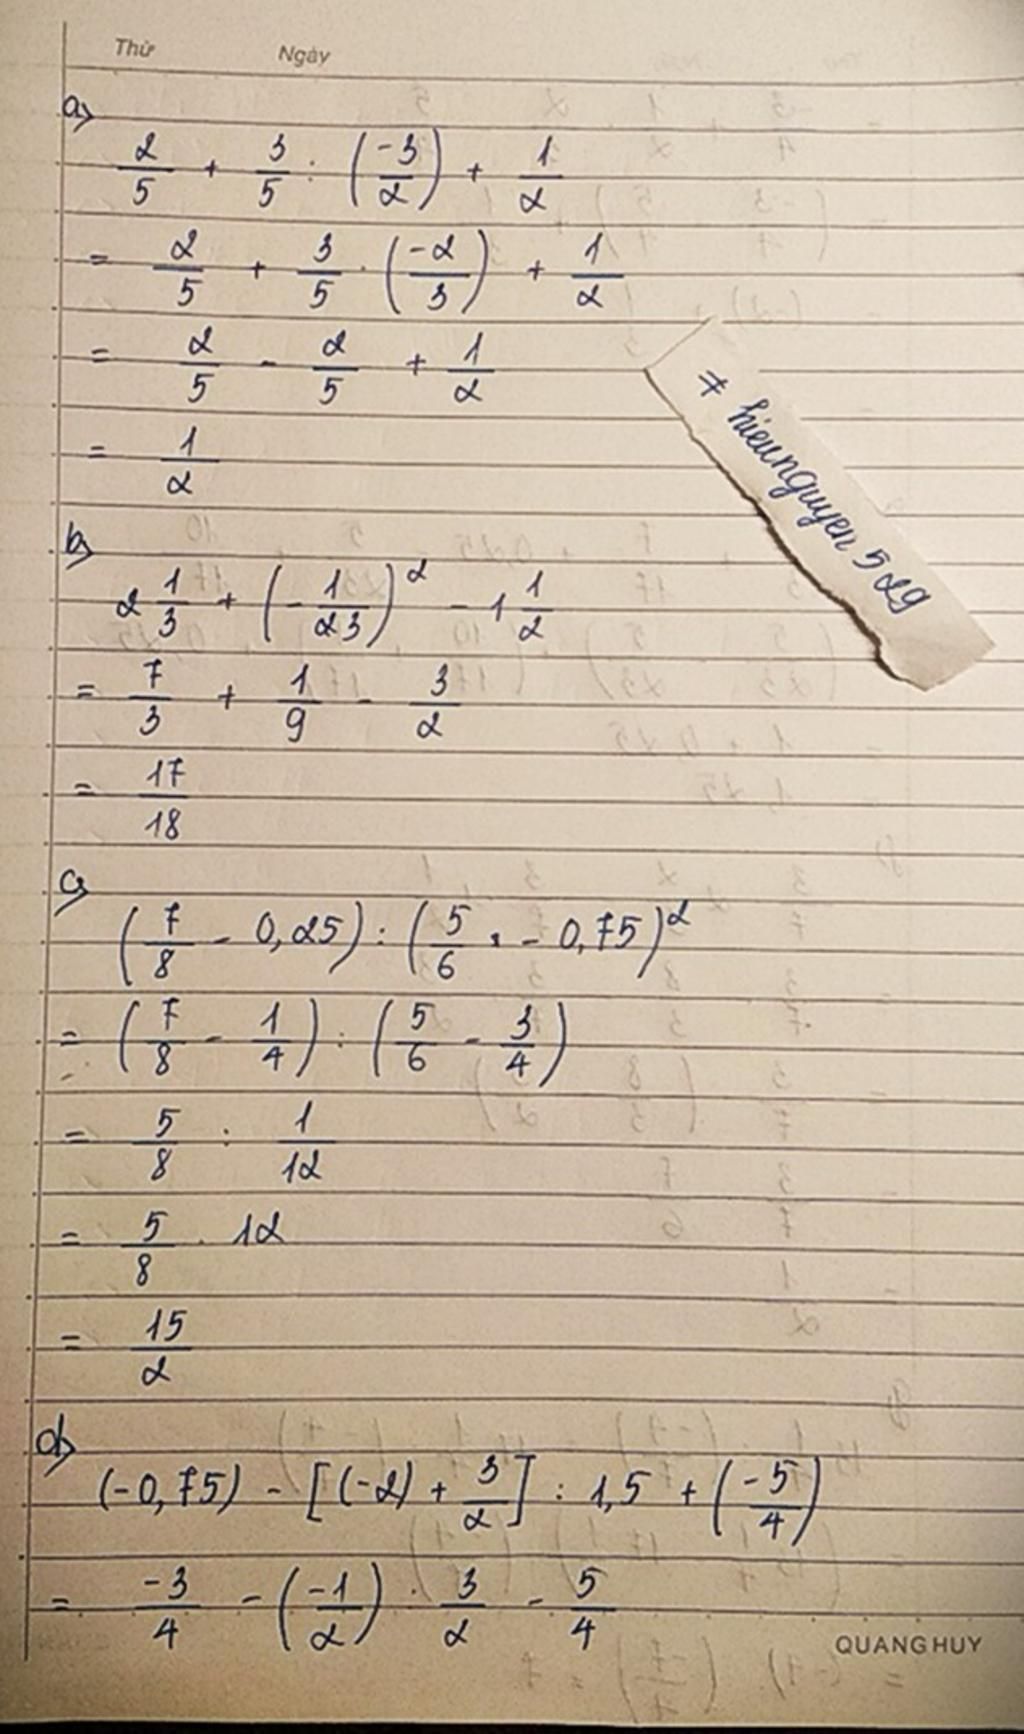 Thứ Ngày
a)
2/5 + 3/5 : (-3/2) + 1/2
= 2/5 + 3/5 . (-2/3) + 1/2
= 2/5 - 2/5 + 1/2
= 1/2
* hieunguyen529
b)
2 1/3 + (-1/23)² - 1 1/2
= 7/3 + 1/9 - 3/2
= 17/18
c)
(7/8 - 0,25) : (5/6 - 0,75)²
= (7/8 - 1/4) : (5/6 - 3/4)
= 5/8 : 1/12
= 5/8 . 12
= 15/2
d)
(-0,75) - [(-2) + 3/2] : 1,5 + (-5/4)
= -3/4 - (-1/2) : 3/2 - 5/4
QUANG HUY